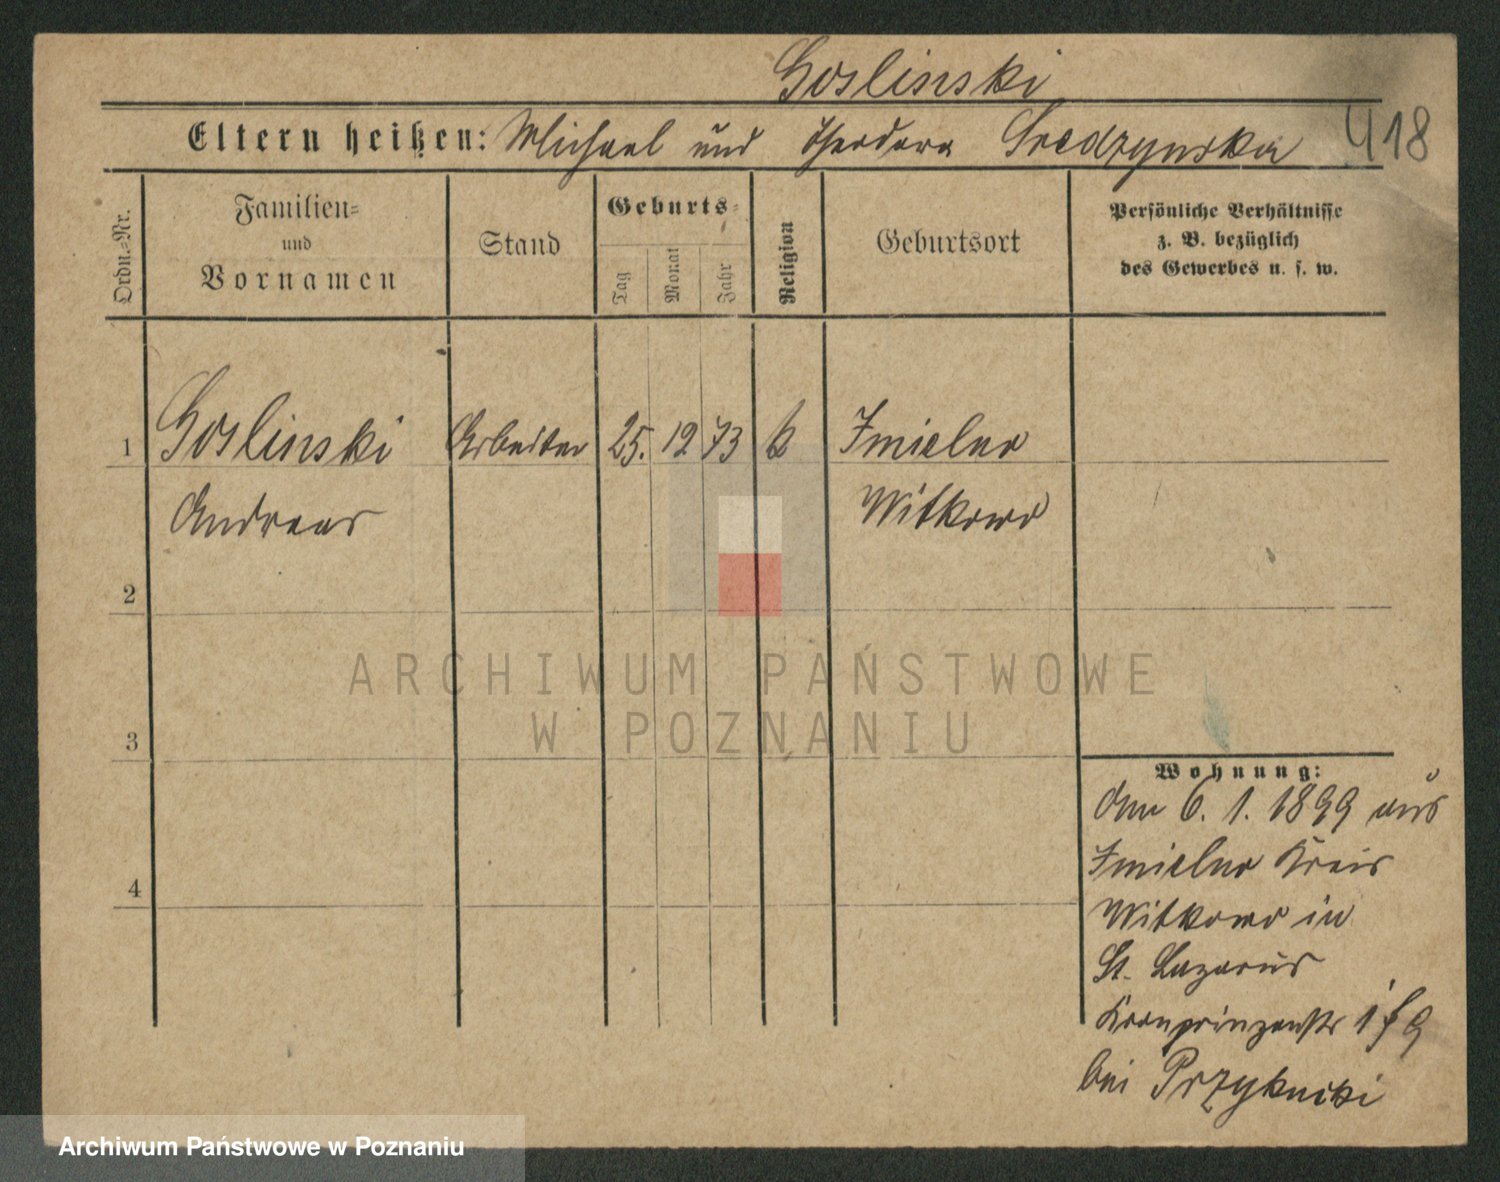 Goslinski
Eltern heißen: Michael und Theodora Sredzynska 418
Ordn.-Nr.
Familien-
und
Vornamen
Stand
Geburts-
Tag
Monat
Jahr
Religion
Geburtsort
Persönliche Verhältnisse
z. B. bezüglich
des Gewerbes u. s. w.
1 Goslinski Arbeiter 25. 12 73 k Imielno
Andreas Witkowo
2
ARCHIWUM PAŃSTWOWE
W POZNANIU
3
Wohnung:
den 6. 1. 1899 aus
Imielno Kreis
4
Witkowo in
St. Lazarus
Kronprinzenstr
bei Przykucki
Archiwum Państwowe w Poznaniu